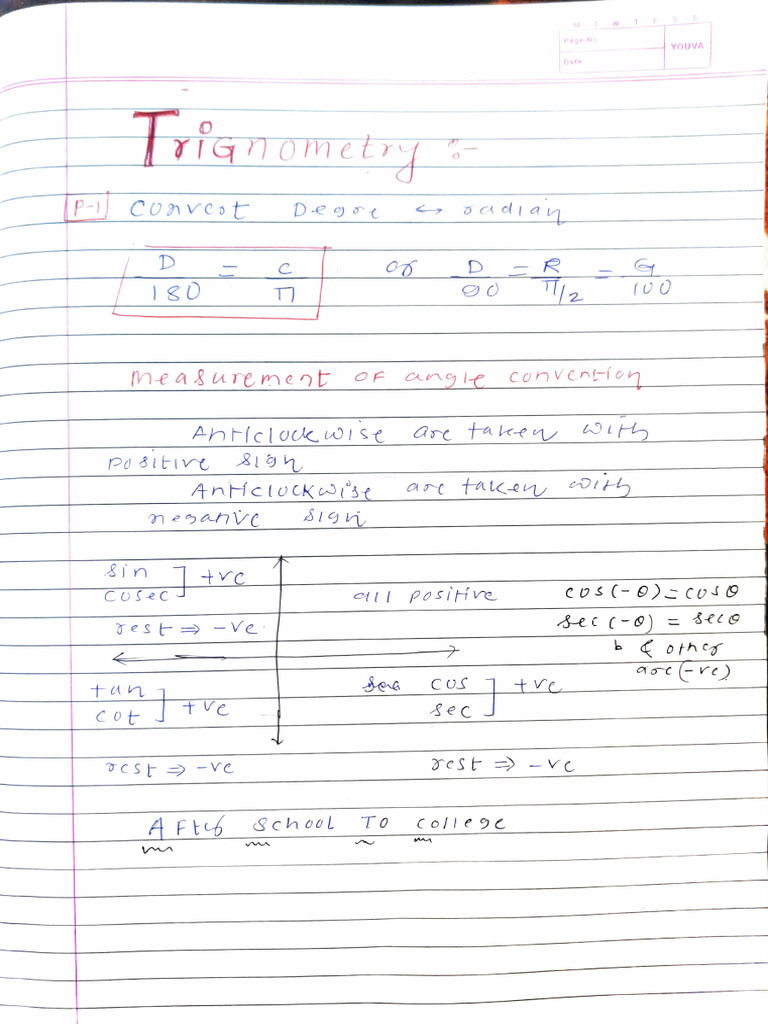 M T W T F S S
Page No.
Date
YOUVA
Trignometry :-
P-1 Convert Degre ↔ radian
D/180 = C/π or D/90 = R/π/2 = G/100
Measurement of angle convention
Anticlockwise are taken with
positive sign
Anticlockwise are taken with
negative sign
sin
cosec ] +ve
rest ⇒ -ve
all positive
cos(-θ) = cosθ
sec(-θ) = secθ
& other
are (-ve)
tan
cot ] +ve
rest ⇒ -ve
cos
sec ] +ve
rest ⇒ -ve
After School To College